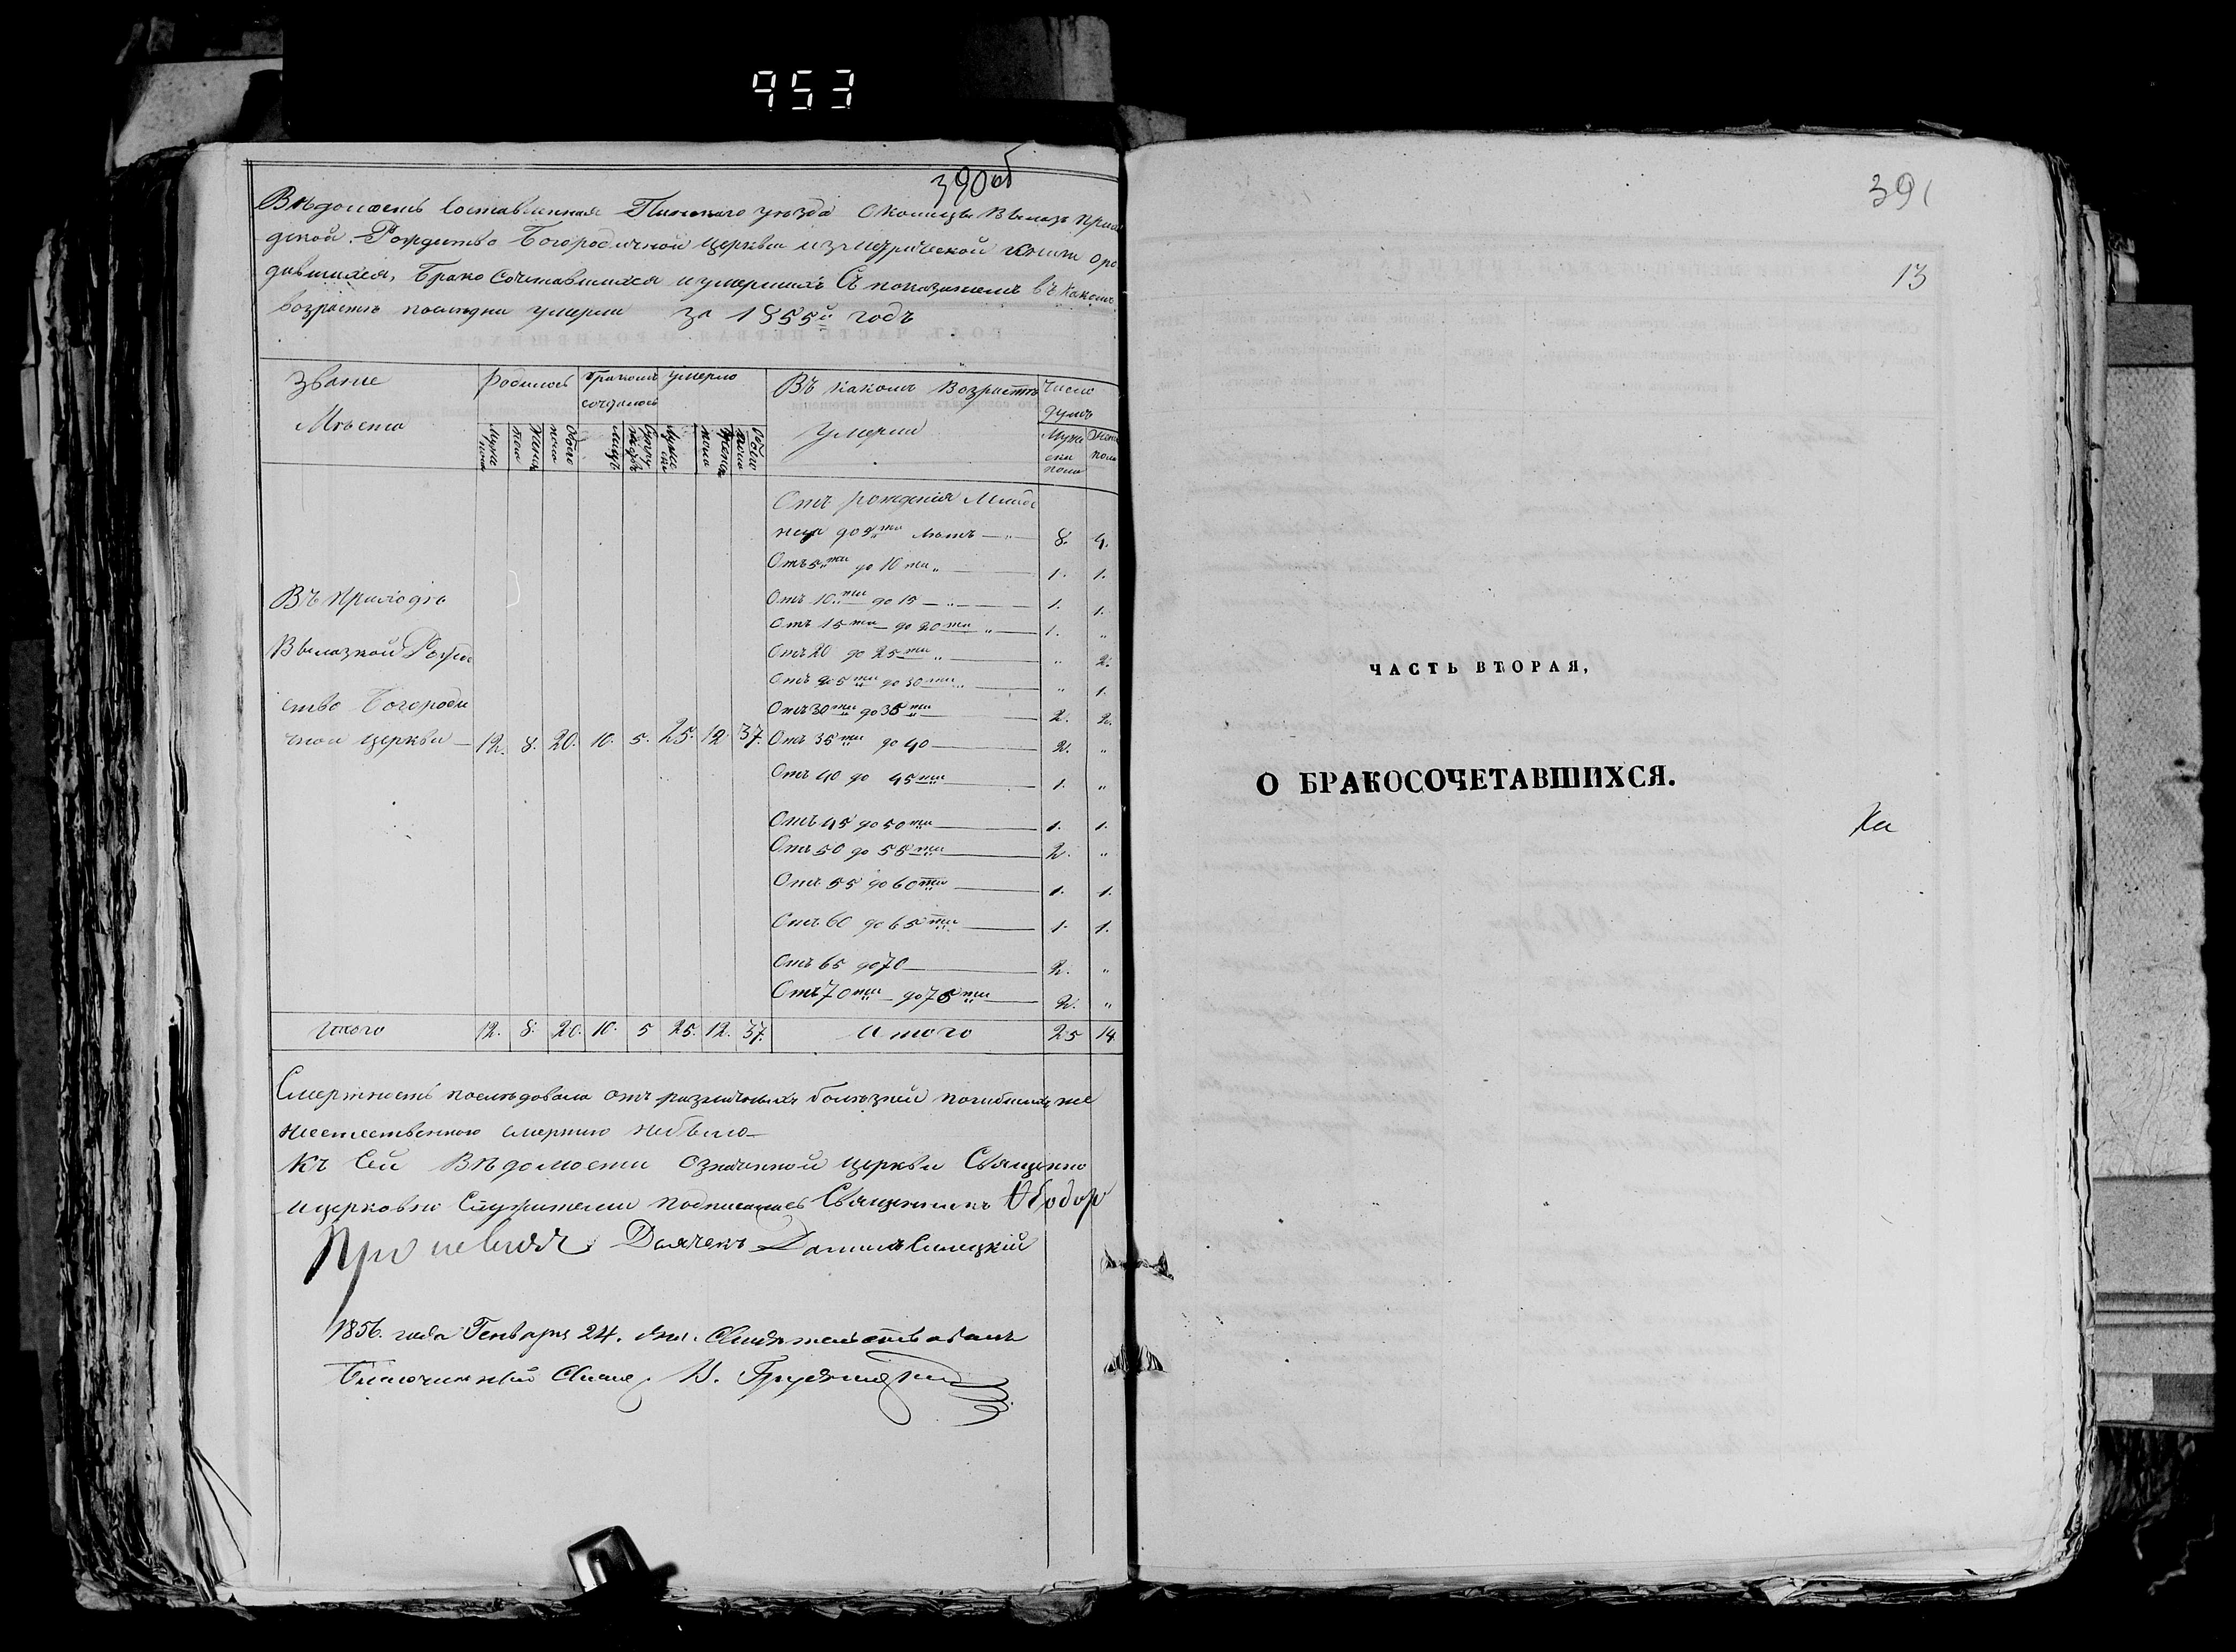 953
390 об
Вѣдомость составленная Пинскаго уѣзда околицы Вылазъ Прихо
дской Рождество Богородичной церкви изъ метрической книги о ро
дившихся, Бракосочетавшихся и умершихъ Съ показаніемъ въ какомъ
возрастѣ последни умерли за 1855й годъ
Званіе Мѣста
Родилось
Бракомъ сочеталось
умерло
Въ какомъ возрастѣ умерли
Число душъ
Муже ска пола
Женс пола
Отъ рожденія Младе
нца до 5ти лѣтъ — 8. 4.
Отъ 5ти до 10ти — 1. 1.
Отъ 10ти до 15 — 1. 1.
Отъ 15ти до 20ти — 1. "
Отъ 20 до 25ти — " 2.
Отъ 25ти до 30ти — " 1.
Отъ 30ти до 35ти — 2. 2.
Въ Приходѣ
Вылазкой Рожде
ство Богороди
чной церкви — 12. 8. 20. 10. 5. 25. 12. 37.
Отъ 35ти до 40 — 2. "
Отъ 40 до 45ти — 1. "
Отъ 45 до 50ти — 1. 1.
Отъ 50 до 55ти — 2. "
Отъ 55 до 60ти — 1. 1.
Отъ 60 до 65ти — 1. 1.
Отъ 65 до 70 — 2. "
Отъ 70ти до 75ти — 2. "
Итого 12. 8. 20. 10. 5 25. 12. 37. Итого 25 14.
Смертность последовала отъ различныхъ болѣзней погибшихъ же
неестественною смертію небыло
Къ Сей Вѣдомости означенной церкви Священно
и церковно Служители подписались Священникъ Ѳеодор
Дьячекъ Даніилъ
1856. года Генваря 24. дня. Свидѣтельствовалъ
Благочинный Свящ.
391
13
ЧАСТЬ ВТОРАЯ,
О БРАКОСОЧЕТАВШИХСЯ.
Ка